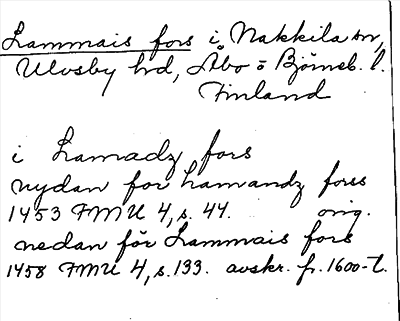 Lammais fors i Nakkila sn,
Ulvsby hd, Åbo o Björneb. l.
Finland
i Lamadz fors
nydan for Lamandz forss
1453 FMU 4, s. 44. orig.
nedan för Lammais fors
1458 FMU 4, s. 133. avskr. fr. 1600-t.